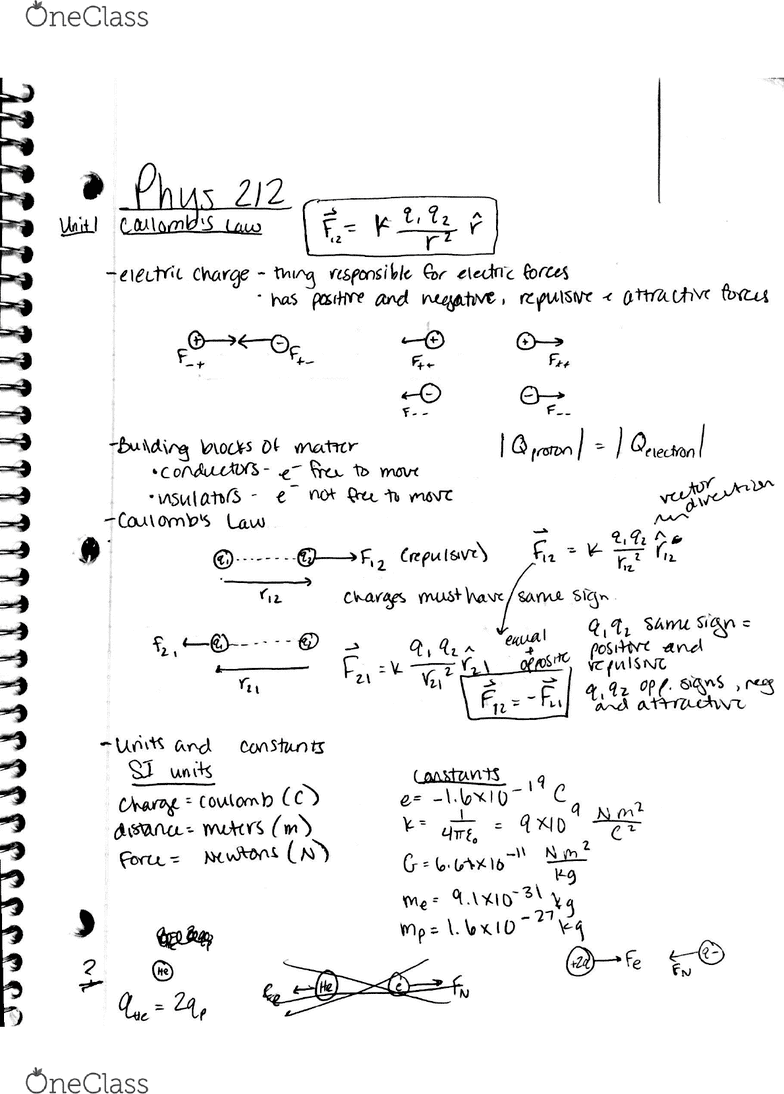 OneClass
Phys 212
Unit 1 Coulomb's Law
F⃗₁₂ = k q₁q₂/r² r̂
-electric charge - thing responsible for electric forces
· has positive and negative, repulsive & attractive forces
+ -
F₋₊ F₊₋
+ +
F₊₊ F₊₊
- -
F₋₋ F₋₋
-Building blocks of matter
|Qproton| = |Qelectron|
•conductors - e⁻ free to move
•insulators - e⁻ not free to move
-Coulomb's Law
vector direction
q₁ q₂ F₁₂ (repulsive)
F⃗₁₂ = k q₁q₂/r₁₂² r̂₁₂
r₁₂
charges must have same sign
F₂₁ q₁ q₂
F⃗₂₁ = k q₁q₂/r₂₁² r̂₂₁
r₂₁
equal + opposite
F⃗₁₂ = -F⃗₂₁
q₁q₂ same sign =
positive and
repulsive
q₁q₂ opp. signs, neg
and attractive
-Units and constants
SI units
charge = coulomb (C)
distance = meters (m)
Force = Newtons (N)
Constants
e = -1.6×10⁻¹⁹ C
k = 1/4πε₀ = 9×10⁹ Nm²/C²
G = 6.67×10⁻¹¹ Nm²/kg
me = 9.1×10⁻³¹ kg
mp = 1.6×10⁻²⁷ kg
?
He
qHe = 2qp
He e FN
+2q Fe FN q-
OneClass